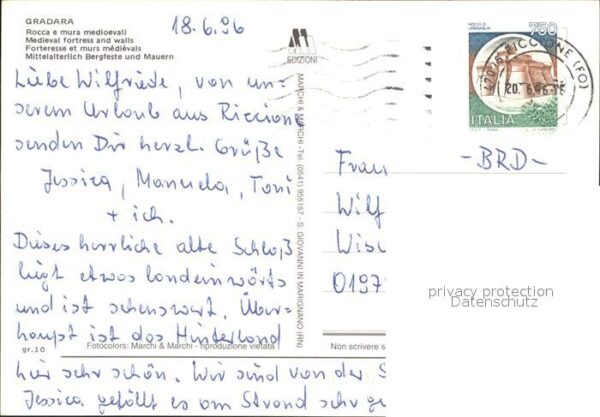 GRADARA
Rocca e mura medioevali
Medieval fortress and walls
Forteresse et murs médiévals
Mittelalterlich Bergfeste und Mauern
18.6.96
EDIZIONI
750
ITALIA
RICCIONE (FO)
Liebe Wilfriede, von un-
serem Urlaub aus Riccione
senden Dir herzl. Grüße
Jessica, Manuela, Toni
+ ich.
Dieses herrliche alte Schloß
liegt etwas landeinwärts
und ist sehenswert. Über-
haupt ist das Hinterland
hier sehr schön. Wir sind von der S
Jessica gefällt es am Strand sehr ge
gr.10
Fotocolors: Marchi & Marchi - riproduzione vietata
MARCHI & MARCHI - Tel. (0541) 955157 - S. GIOVANNI IN MARIGNANO (RN)
Non scrivere s
- BRD -
Frau
Wilf
Wisc
0197
privacy protection
Datenschutz